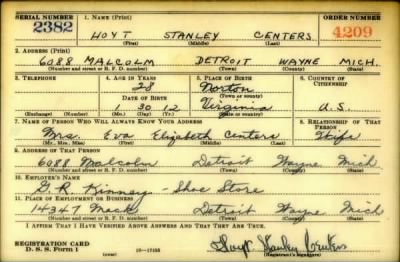 SERIAL NUMBER 1. NAME (Print) ORDER NUMBER
2382 HOYT STANLEY CENTERS 4209
(First) (Middle) (Last)
2. ADDRESS (Print)
6088 MALCOLM DETROIT WAYNE MICH.
(Number and street or R. F. D. number) (Town) (County) (State)
3. TELEPHONE 4. AGE IN YEARS 5. PLACE OF BIRTH 6. COUNTRY OF CITIZENSHIP
28 Norton
DATE OF BIRTH (Town or county)
1 30 12 Virginia U.S.
(Exchange) (Number) (Mo.) (Day) (Yr.) (State or country)
7. NAME OF PERSON WHO WILL ALWAYS KNOW YOUR ADDRESS 8. RELATIONSHIP OF THAT PERSON
Mrs. Eva Elizabeth Centers Wife
(Mr., Mrs., Miss) (First) (Middle) (Last)
9. ADDRESS OF THAT PERSON
6088 Malcolm Detroit Wayne Mich
(Number and street or R. F. D. number) (Town) (County) (State)
10. EMPLOYER'S NAME
G. R. Kinney - Shoe Store
11. PLACE OF EMPLOYMENT OR BUSINESS
14347 Mack Detroit Wayne Mich
(Number and street or R. F. D. number) (Town) (County) (State)
I AFFIRM THAT I HAVE VERIFIED ABOVE ANSWERS AND THAT THEY ARE TRUE.
REGISTRATION CARD
D. S. Form 1 (over) Hoyt Stanley Centers
(Registrant's signature)